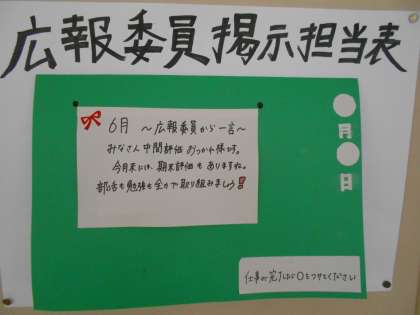 広報委員掲示担当表
6月 〜広報委員から一言〜
みなさん中間評価おつかれ様です。
今月末には、期末評価もありますね。
部活も勉強も全力で取り組みましょう!
月
日
仕事が完了したら〇をつけてください